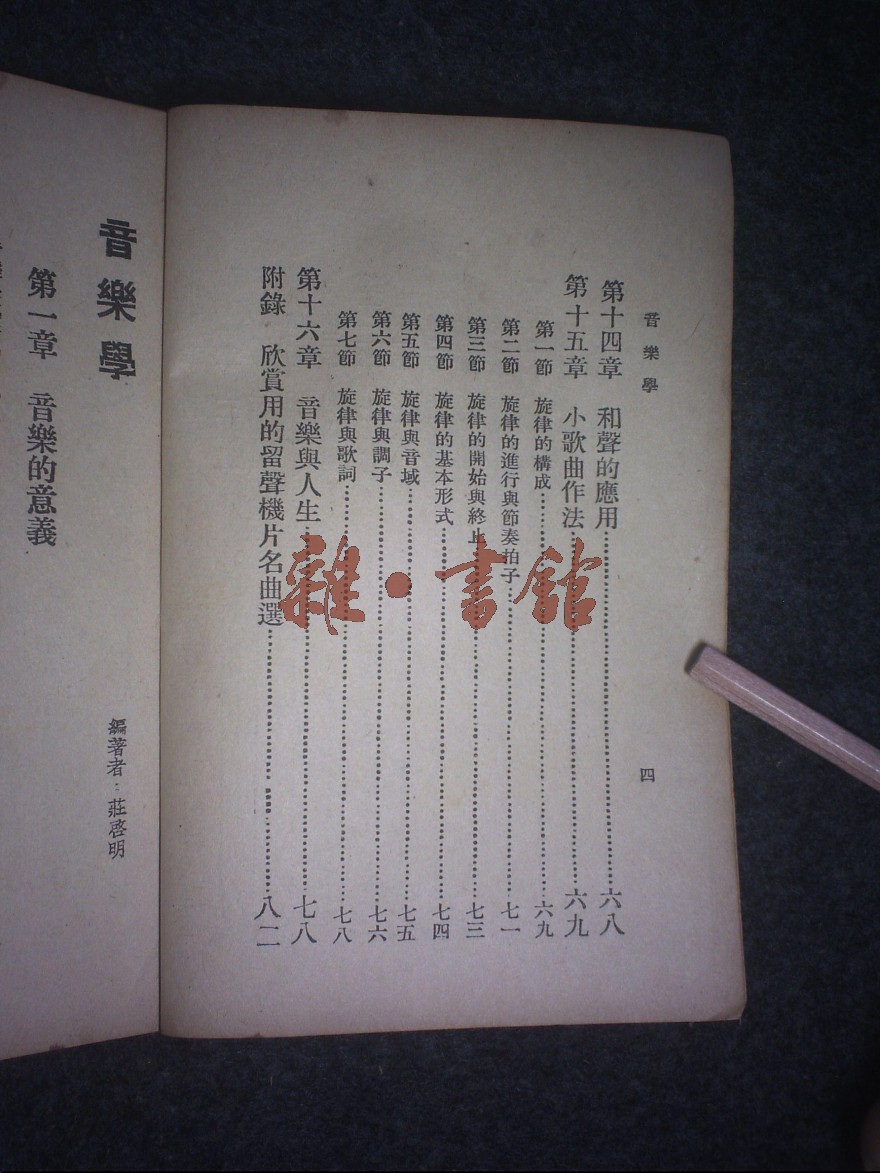 音樂學
四
第十四章　和聲的應用……六八
第十五章　小歌曲作法……六九
第一節　旋律的構成……六九
第二節　旋律的進行與節奏拍子……七一
第三節　旋律的開始與終止……七三
第四節　旋律的基本形式……七四
第五節　旋律與音域……七五
第六節　旋律與調子……七六
第七節　旋律與歌詞……七八
第十六章　音樂與人生……七八
附錄　欣賞用的留聲機片名曲選……八二
雜·書館
音樂學
編著者：莊啓明
第一章　音樂的意義